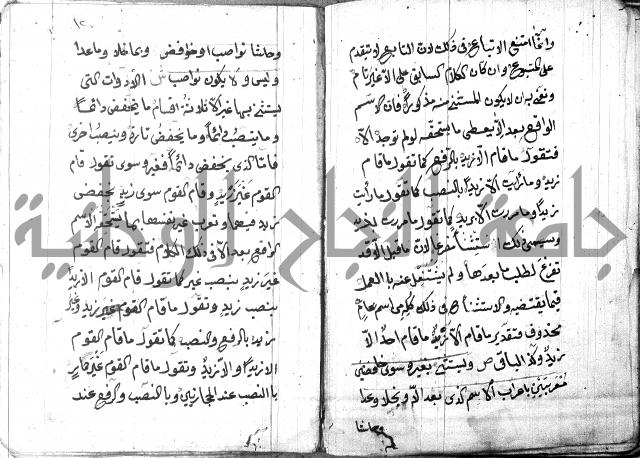 وانما امتنع الاتباع في ذلك لان التابع لا يتقدم
على المتبوع وان كان الكلام السابق على الا غير تام
ونعني به ان لا يكون المستثنى منه مذكورا فان الاسم
الواقع بعد الا يعطى ما يستحقه لو لم توجد الا
فتقول ما قام الا زيد بالرفع كما تقول ما قام
زيد وما رأيت الا زيدا بالنصب كما تقول ما رأيت
زيدا وما مررت الا بزيد كما تقول ما مررت بزيد
ويسمى ذلك استثناء مفرغا لان ما قبل الا قد
تفرغ لطلب ما بعدها ولم يشتغل عنه بالعمل
فيما يقتضيه والاستثناء في ذلك كله من اسم عام
محذوف فتقدير ما قام الا زيد ما قام احد الا
زيد وكذا الباقي ص ويستثنى بغير وسوى خافضين
معربين باعراب الاسم الذي بعد الا وبخلا وعدا
وحاشا
١٢٠
وحاشا نواصب او خوافض وبما خلا وما عدا
وليس ولا يكون نواصب ش الادوات التي
يستثنى بها غير الا ثلاثة اقسام ما يخفض دائما
وما ينصب دائما وما يخفض تارة وينصب اخرى
فاما الذي يخفض دائما فغير وسوى تقول قام
القوم غير زيد وقام القوم سوى زيد بخفض
زيد فيهما وتعرب غير نفسها بما يستحقه الاسم
الواقع بعد الا في ذلك الكلام فتقول قام القوم
غير زيد بنصب غير كما تقول قام القوم الا زيدا
بنصب زيد وتقول ما قام القوم غير زيد وغير
زيد بالرفع والنصب كما تقول ما قام القوم
الا زيدا والا زيد وتقول ما قام القوم غير حمار
بالنصب عند الحجازيين وبالنصب والرفع عند
جامعة النجاح الوطنية